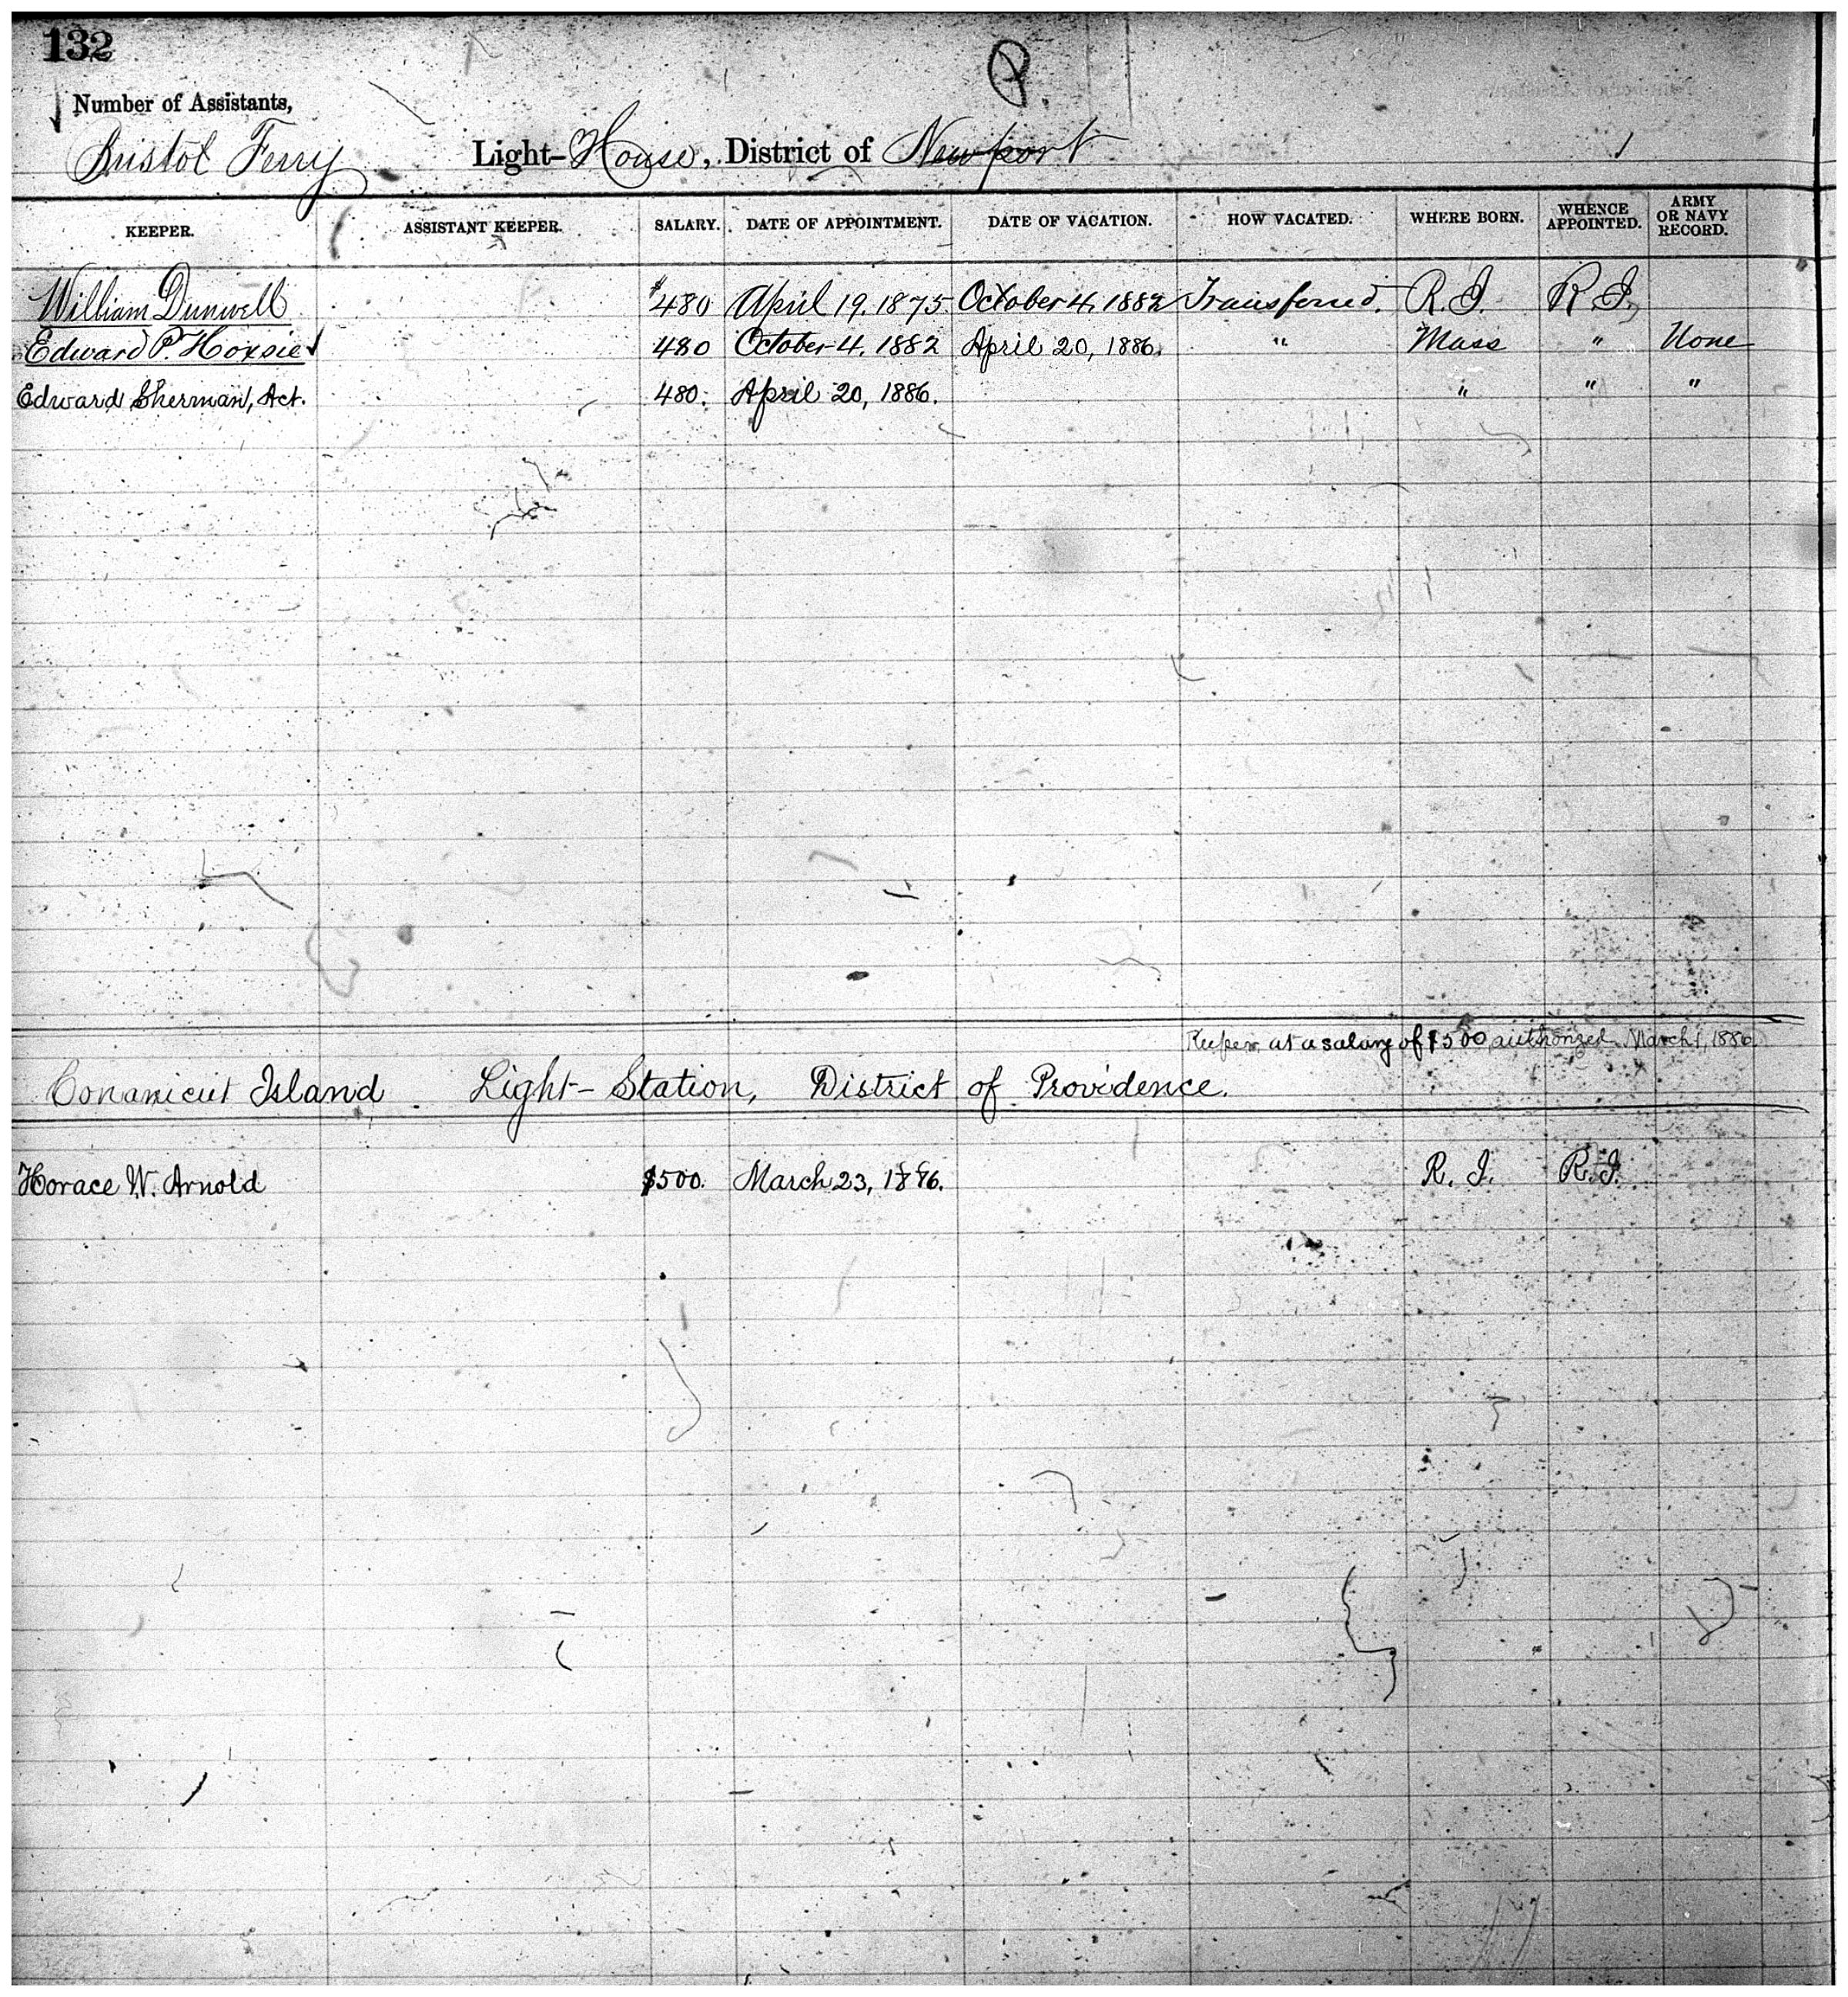 132
P.
Number of Assistants,
Bristol Ferry Light-House, District of Newport
KEEPER. ASSISTANT KEEPER. SALARY. DATE OF APPOINTMENT. DATE OF VACATION. HOW VACATED. WHERE BORN. WHENCE APPOINTED. ARMY OR NAVY RECORD.
William Dunwell $480 April 19, 1875. October 4, 1882 Transferred. R.I. R.I.,
Edward P. Hoxsie 480 October 4, 1882 April 20, 1886. " Mass " None
Edward Sherman, Act. 480. April 20, 1886. " " "
Keeper at a salary of $500 authorized March 1, 1886
Conanicut Island Light-Station, District of Providence.
Horace W. Arnold $500. March 23, 1886. R. I. R.I.